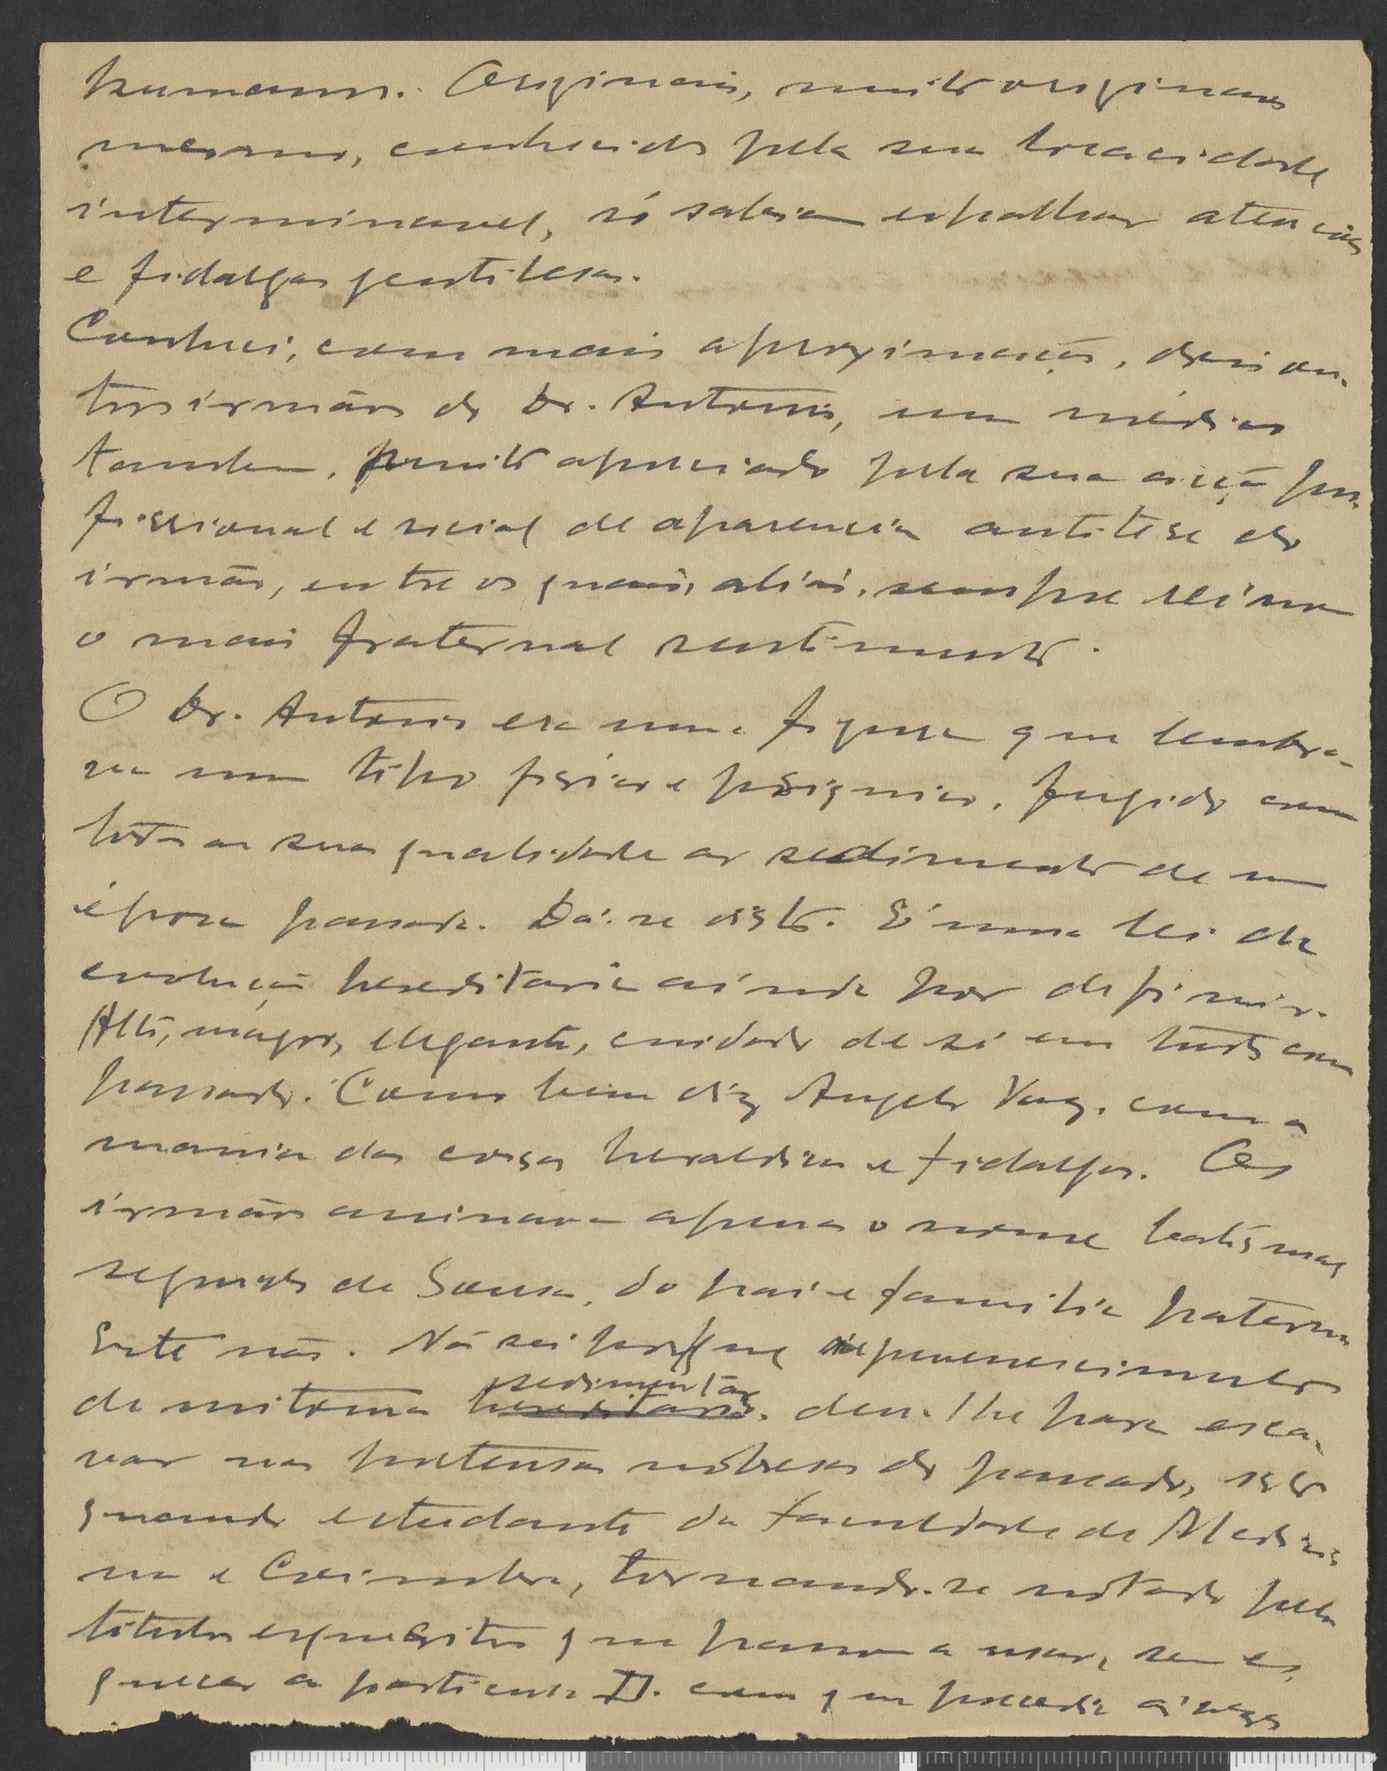 humanos. Originais, muito originais
mesmo, conhecidos pela sua loquacidade
interminavel, só sabiam espalhar atenções
e fidalgas gentilesas.
Conheci, com mais aproximação, dois ou-
tros irmãos do Dr. Antonio, um médico
tambem, muito apreciado pela sua acção pro-
fissional e social de aparencia antitese do
irmão, entre os quais, aliás, sempre reinou
o mais fraternal sentimento.
O Dr. Antonio era uma figura que lembra-
va um tipo fisico e psiquico, fugido com
todas as suas qualidades ao sedimento de uma
época passada. Dá-se disto. É uma lei de
evolução hereditaria ainda por definir.
Alto, magro, elegante, cuidado de si em tudo com
passado. Como bem diz Angelo Vaz, com a
mania das coisas heraldicas e fidalgas. Os
irmãos assinavam apenas o nome batismal
seguido de Sousa, do pai e familia paterna
Este não. Não sei porque
de mitomania sedimentar, deu-lhe para esca-
var nas pretensas nobresas do passado, isto
quando estudante da Faculdade de Medici-
na e Coimbra, tornando-se notado pelos
titulos esquesitos que passou a usar, sem es-
quecer a particula D. com que precedia ás vezes